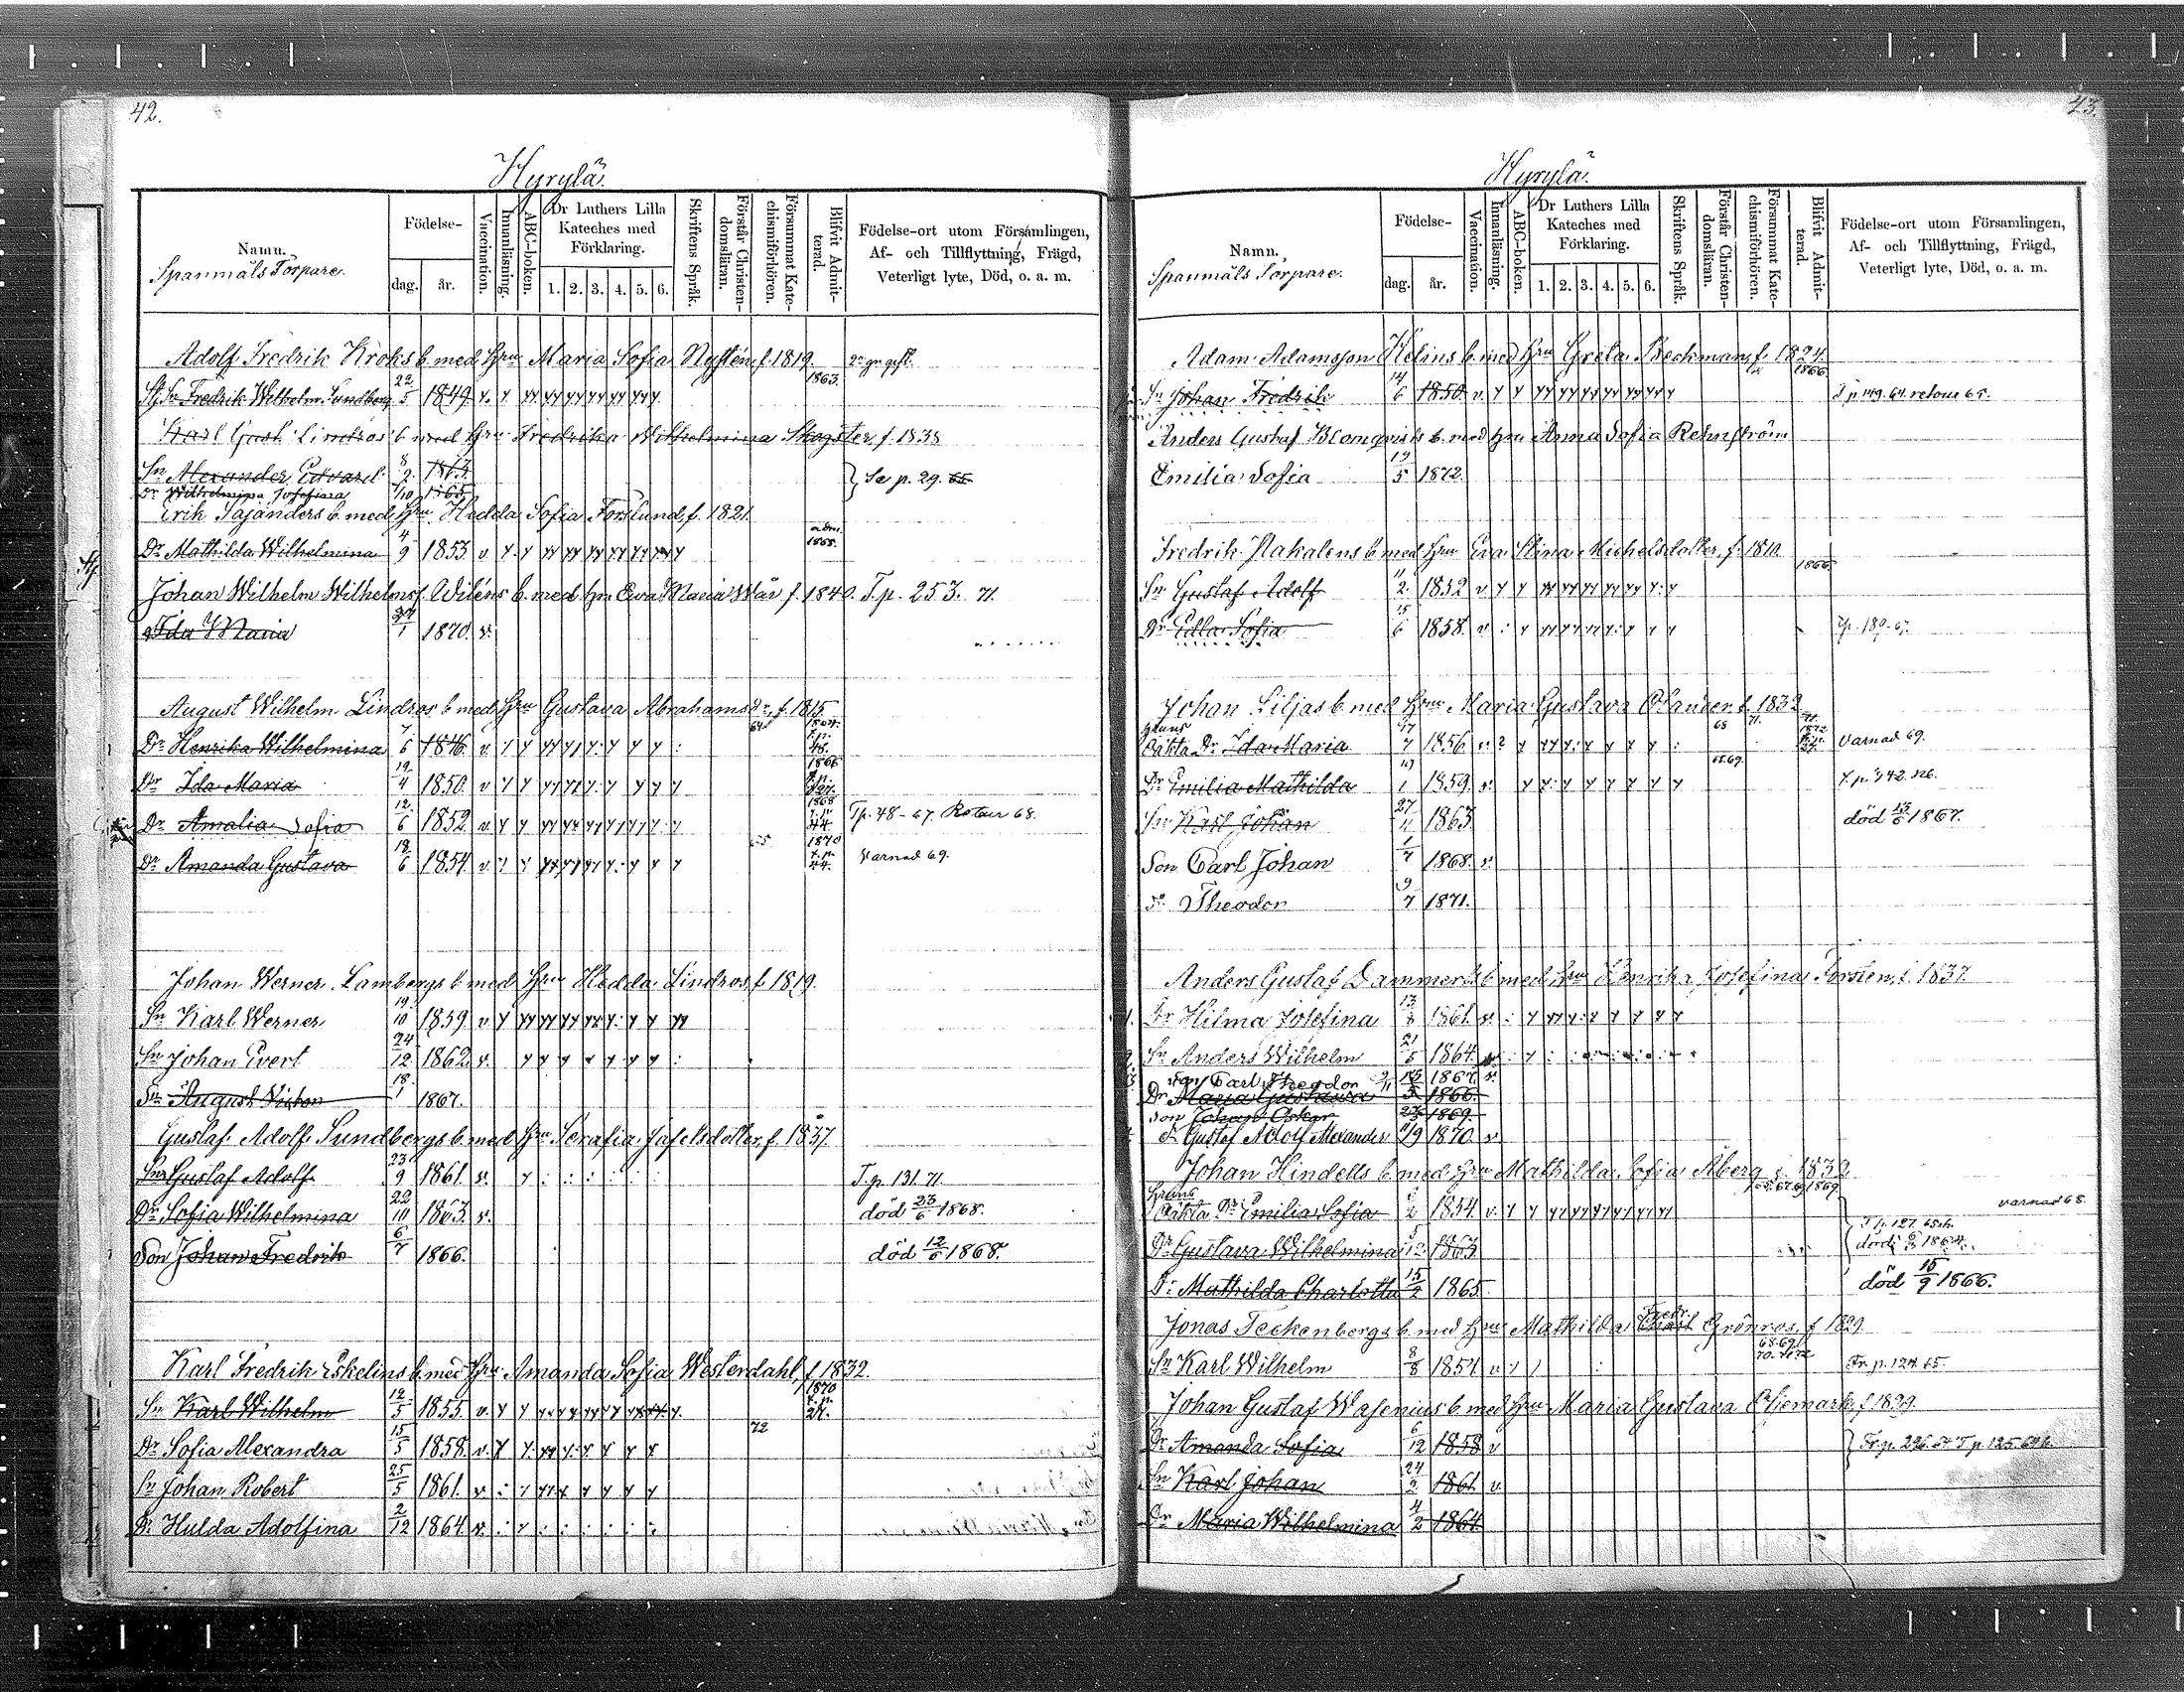 42.
Hyrylä.
Namn.
Spanmåls Torpare.
Födelse-
dag.
år.
Vaccination.
Innanläsning.
ABC-boken.
Dr Luthers Lilla
Kateches med
Förklaring.
1. 2. 3. 4. 5. 6.
Skriftens Språk.
Förstår Christen-
domsläran.
Försummat Kate-
chismiförhören.
Blifvit Admit-
terad.
Födelse-ort utom Församlingen,
Af- och Tillflyttning, Frägd,
Veterligt lyte, Död, o. a. m.
Adolf Fredrik Kroks b. med Hru Maria Sofia Nystén f. 1819.
Fredrik Wilhelm Sundberg 22/5 1849. v. 1863.
Karl Gust. Lindros b med Hru Fredrika Wilhelmina Skogster, f. 1838
Sn Alexander Edvard 8/2 1863. Se p. 29. 65.
Dr Wilhelmina Josefina 1865.
Erik Sajanders b. med Hru Hedda Sofia Forslund, f. 1821.
Dr Mathilda Wilhelmina 4/9 1853 v
Johan Wilhelm Wilhelmss. Wiléns b. med Hru Ewa Maria Wår f. 1840. T. p. 253. 71.
Ida Maria 27/1 1870. v.
August Wilhelm Lindros b med Hru Gustava Abrahams Dr, f. 1815
Dr Henrika Wilhelmina 7/6 1846. v.
Dr Ida Maria 19/4 1850. v 1866
Dr Amalia Sofia 12/6 1852. v. 1868 Tp. 48-67. Retour 68.
Dr Amanda Gustava 18/6 1854. v 1870 Varnad 69.
Johan Werner Lambergs b med Hru Hedda Lindros, f. 1819.
Sn Karl Werner 19/10 1859. v
Sn Johan Evert 24/12 1862. v.
Sn August Viktor 18/1 1867.
Gustaf Adolf Sundbergs b. med Hru Serafia Jafetsdotter, f. 1837.
Sn Gustaf Adolf 23/9 1861. v. T. p. 131. 71.
Dr Sofia Wilhelmina 22/10 1863. v. död 23/6 1868.
Son Johan Fredrik 6/7 1866. död 12/6 1868.
Karl Fredrik Eskelins b. med Hru Amanda Sofia Westerdahl, f 1832.
Sn Karl Wilhelm 12/5 1855. v. 1870 t. p. 27.
Dr Sofia Alexandra 15/5 1858. v. 72
Sn Johan Robert 25/5 1861. v.
Dr Hulda Adolfina 2/12 1864. v.
43.
Hyrylä.
Namn.
Spanmåls Torpare.
Födelse-
dag.
år.
Vaccination.
Innanläsning.
ABC-boken.
Dr Luthers Lilla
Kateches med
Förklaring.
1. 2. 3. 4. 5. 6.
Skriftens Språk.
Förstår Christen-
domsläran.
Försummat Kate-
chismiförhören.
Blifvit Admit-
terad.
Födelse-ort utom Församlingen,
Af- och Tillflyttning, Frägd,
Veterligt lyte, Död, o. a. m.
Adam Adamsson Helins b. med Hru Greta Beckman, f. 1824.
Sn Johan Fredrik 14/6 1850. v. 1866 T p. 149. 64. retour 65.
Anders Gustaf Blomqvists b. med Hru Anna Sofia Rehnström
Emilia Sofia 19/5 1872.
Fredrik Hakalens b med Hru Eva Stina Michelsdotter, f. 1810
Sn Gustaf Adolf 11/2 1852 v 1866.
Dr Edla Sofia 15/6 1858. v
Johan Liljas b med Hru Maria Gustava Olander f. 1832
Oäkta Dr Ida Maria 17/7 1856 v. Varnad 69.
Dr Emilia Mathilda 1859. v.
Sn Karl Johan 27/11 1863. död 13/6 1867.
Son Carl Johan 1/7 1868. v.
Theodor 9/7 1871.
Anders Gustaf Dammerts b med Hru Henrika Josefina Forstén, f. 1837.
Dr Hilma Josefina 13/8 1861. v.
Sn Anders Wilhelm 21/5 1864.
Son Carl Theodor 1867. v.
Dr Maria Gustava 1866.
Son Johan Oskar 1869.
Gustaf Adolf Alexander 11/9 1870. v
Johan Hindells b med Hru Mathilda Sofia Åberg f. 1832
Oäkta Dr Emilia Sofia 1854. v. 1869. varnad 68.
Dr Gustava Wilhelmina 5/12 1863
Dr Mathilda Charlotta 15/2 1865. död 15/9 1866.
Jonas Teckenbergs b. med Hru Mathilda Fredr. Grönros, f 1829
Sn Karl Wilhelm 8/8 1857 v Fr. p. 124. 65.
Johan Gustaf Wasenius b med Hru Maria Gustava f 1839.
Dr Amanda Sofia 6/12 1858 v
Sn Karl Johan 24/2 1861 v.
Dr Maria Wilhelmina 4/2 1864.